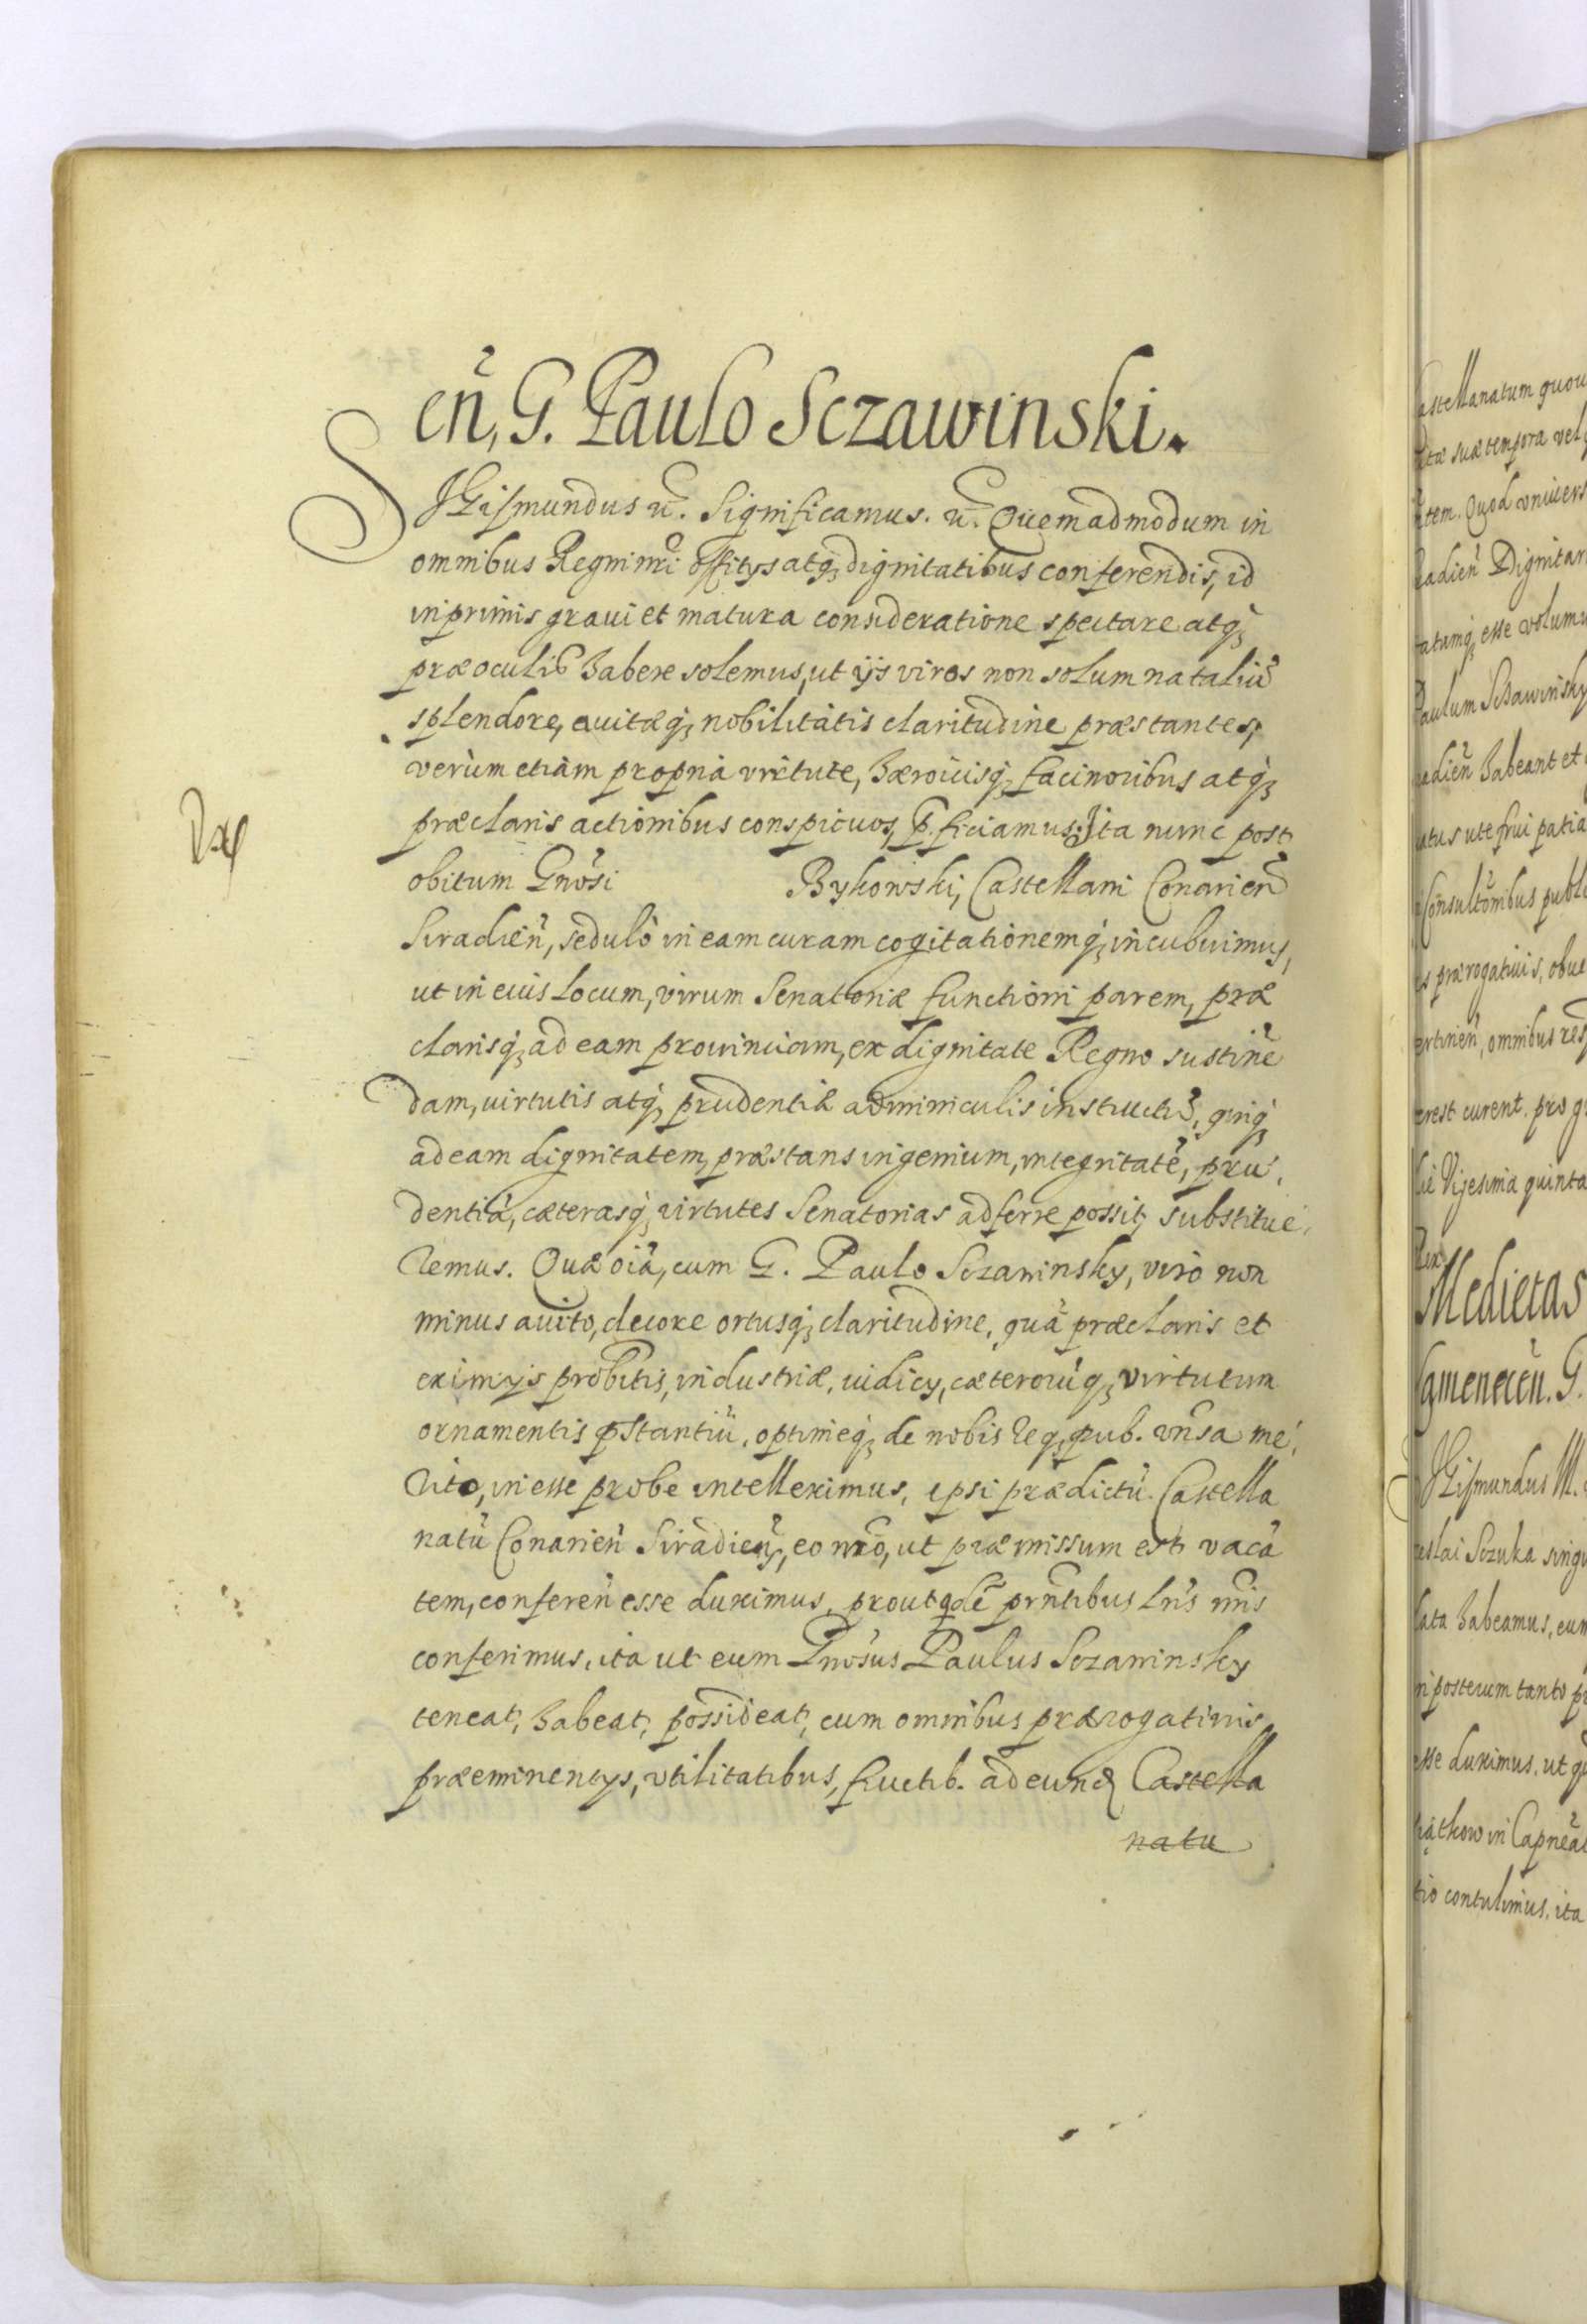 en̄, G. Paulo Sczawinski.
SIGismundus &c. Significamus. &c. Quemadmodum in
omnibus Regni nr̄i offitys atq₃ dignitatibus conferendis, id
inprimis graui et matura consideratione spectare atq₃
præ oculis habere solemus, ut ijs viros non solum nataliū
splendore, auitæq₃ nobilitatis claritudine præstantes,
verùm etiàm propria virtute, hæroicisq₃ facinoribus atq₃
præclaris actionibus conspicuos, p̱ficiamus: Ita nunc post
obitum Gnōsi Bykowski, Castellani Conarien̄
Siradien̄, sedulò in eam curam cogitationemq₃ incubuimus,
ut in eius locum, virum Senatoriæ functioni parem, præ
clarisq₃ ad eam prouinciam, ex dignitate Regno sustinē
dam, uirtutis atq₃ prudentiæ adminiculis instructū, quiq₃
ad eam dignitatem, præstans ingenium, integritatē, pru,
dentiā, cæterasq₃ virtutes Senatorias adferre possit, substitue,
remus. Quæ oīa, cum G. Paulo Sczawinsky, viro non
minus auito, decore ortusq₃ claritudine, quā præclaris et
eximijs probitis, industriæ, iudicy, cæterorūq₃ virtutum
ornamentis p̄stantiū, optimeq₃ de nobis Req₃ pub. vn̄sa me,
rito, inesse probe intelleximus, ipsi prædictū Castella
natū Conarien̄ Siradien̄, eo mō, ut præmissum est vacā
tem, conferen̄ esse duximus, prout qdē prn̄tibus Lrīs nr̄is
conferimus, ita ut eum Gnōsus Paulus Sczawinsky
teneat, habeat, possideat, cum omnibus prærogatiuis
præeminentys, vtilitatibus, fructib. ad eund Castella
natu
Rx
astellanatum quou
itæ suæ tempora vel
tem. Quod vniuers
adien̄ Dignitar
atumq₃ esse volumu
Paulum Sczawinsky
adien̄ habeant et
atus ute frui patia
Consultōnibus publi
s prærogatiuis, obue
ertinen̄, omnibus res
erest curent, pro g
ie Vigesima quinta
Rex
Medietas
Camenecen̄. G.
SIGismundus III.
eslai Sczuka singu
lata habeamus, eum
in posterum tanto p
esse duximus, ut q
iątkow in Capneā
tio contulimus, ita